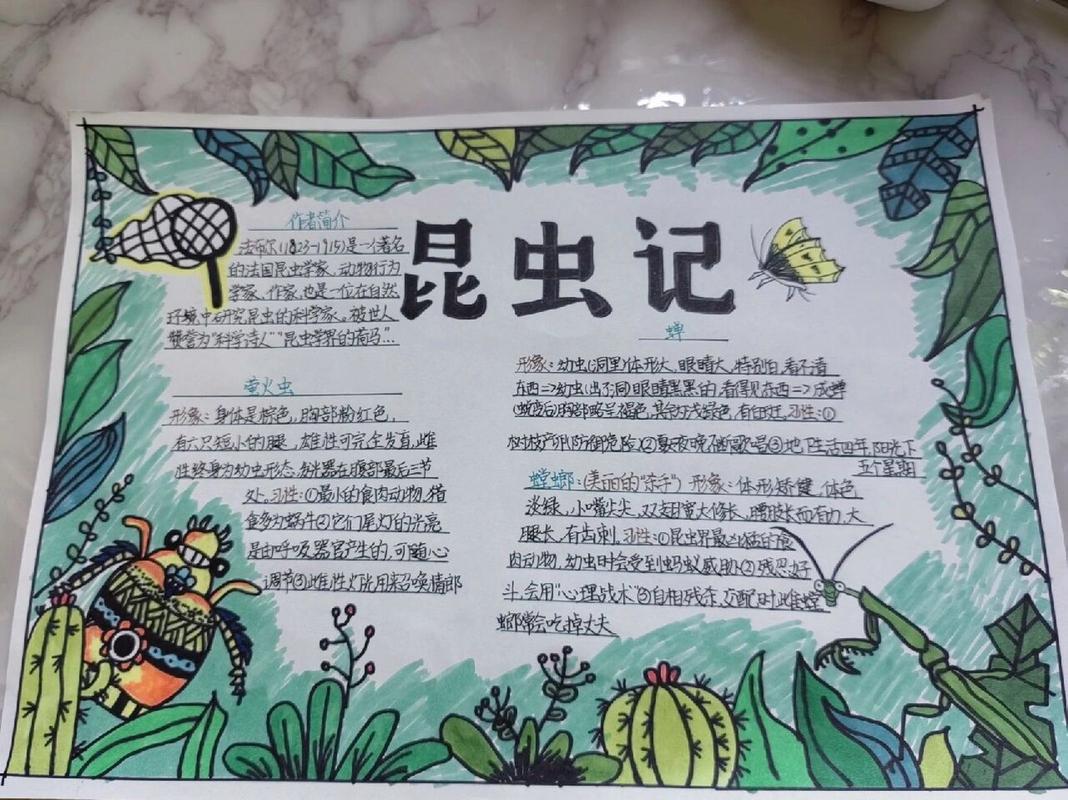 昆虫记
作者简介
法布尔(1823-1915)是一个著名
的法国昆虫学家、动物行为
学家、作家,也是一位在自然
环境中研究昆虫的科学家。被世人
赞誉为"科学诗人""昆虫学界的荷马"...
萤火虫
形象:身体是棕色,胸部粉红色,
有六只短小的腿,雄性可完全发育,雌
性终身为幼虫形态,发光器在腹部最后三节
处,习性:①最小的食肉动物,猎
食多为蜗牛②它们尾灯的光亮
是由呼吸器官产生的,可随心
调节③雌性灯光用来召唤情郎
蝉
形象:幼虫(洞里)体形大,眼睛大,特别白,看不清
东西=>幼虫(出洞)眼睛黑黑的,看得见东西=>成蝉
(蜕变后)胸部略呈褐色,其余才浅绿色,有白斑,习性:①
树枝产卵,防御危险②夏夜晚不断歌唱③地下生活四年,阳光下
五个星期
螳螂:(美丽的"杀手")形象:体形矫健,体色
淡绿,小嘴尖尖,双翅宽大修长,腰肢长而有力,大
腿长,有齿刺.习性:①昆虫界最凶猛的食
肉动物,幼虫时会受到蚂蚁威胁②残忍好
斗,会用"心理战术"③自相残杀,交配时雌螳
螂常会吃掉丈夫